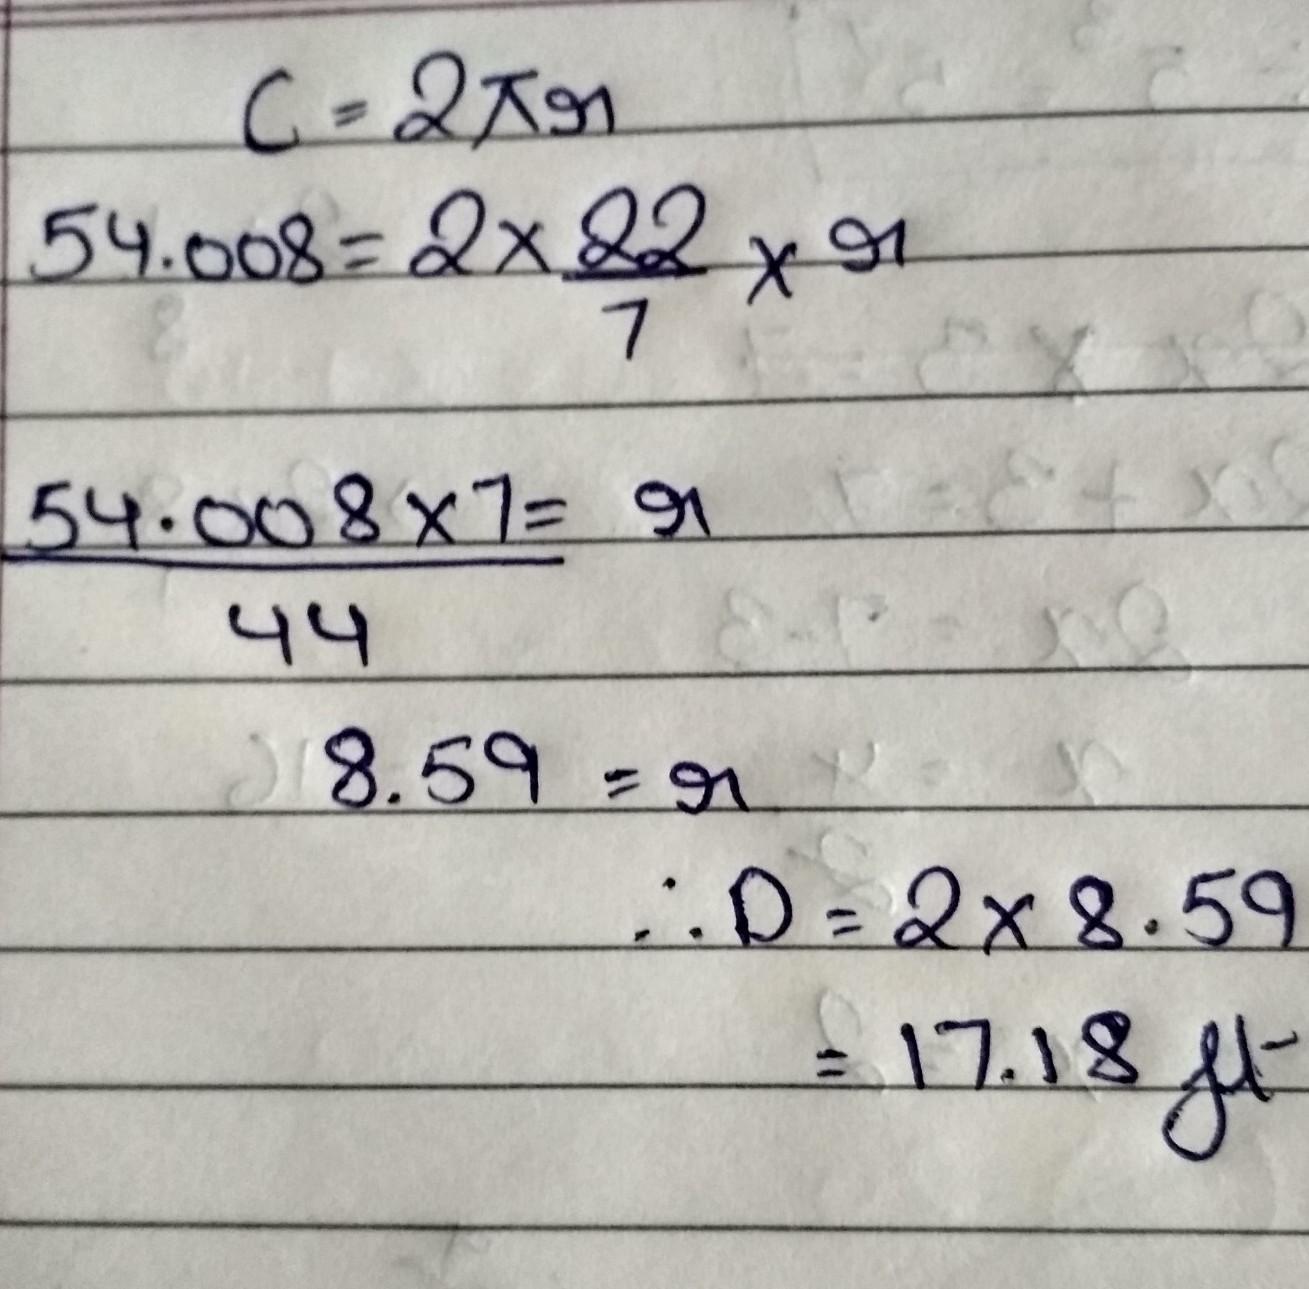 C = 2πr
54.008 = 2 × 22/7 × r
54.008 × 7 = r
44
8.59 = r
∴ D = 2 × 8.59
= 17.18 ft